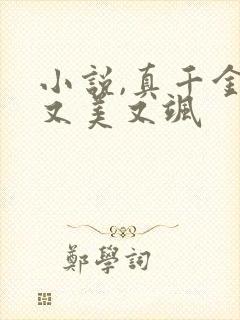 小説,真千金
又美又颯
鄭學詞